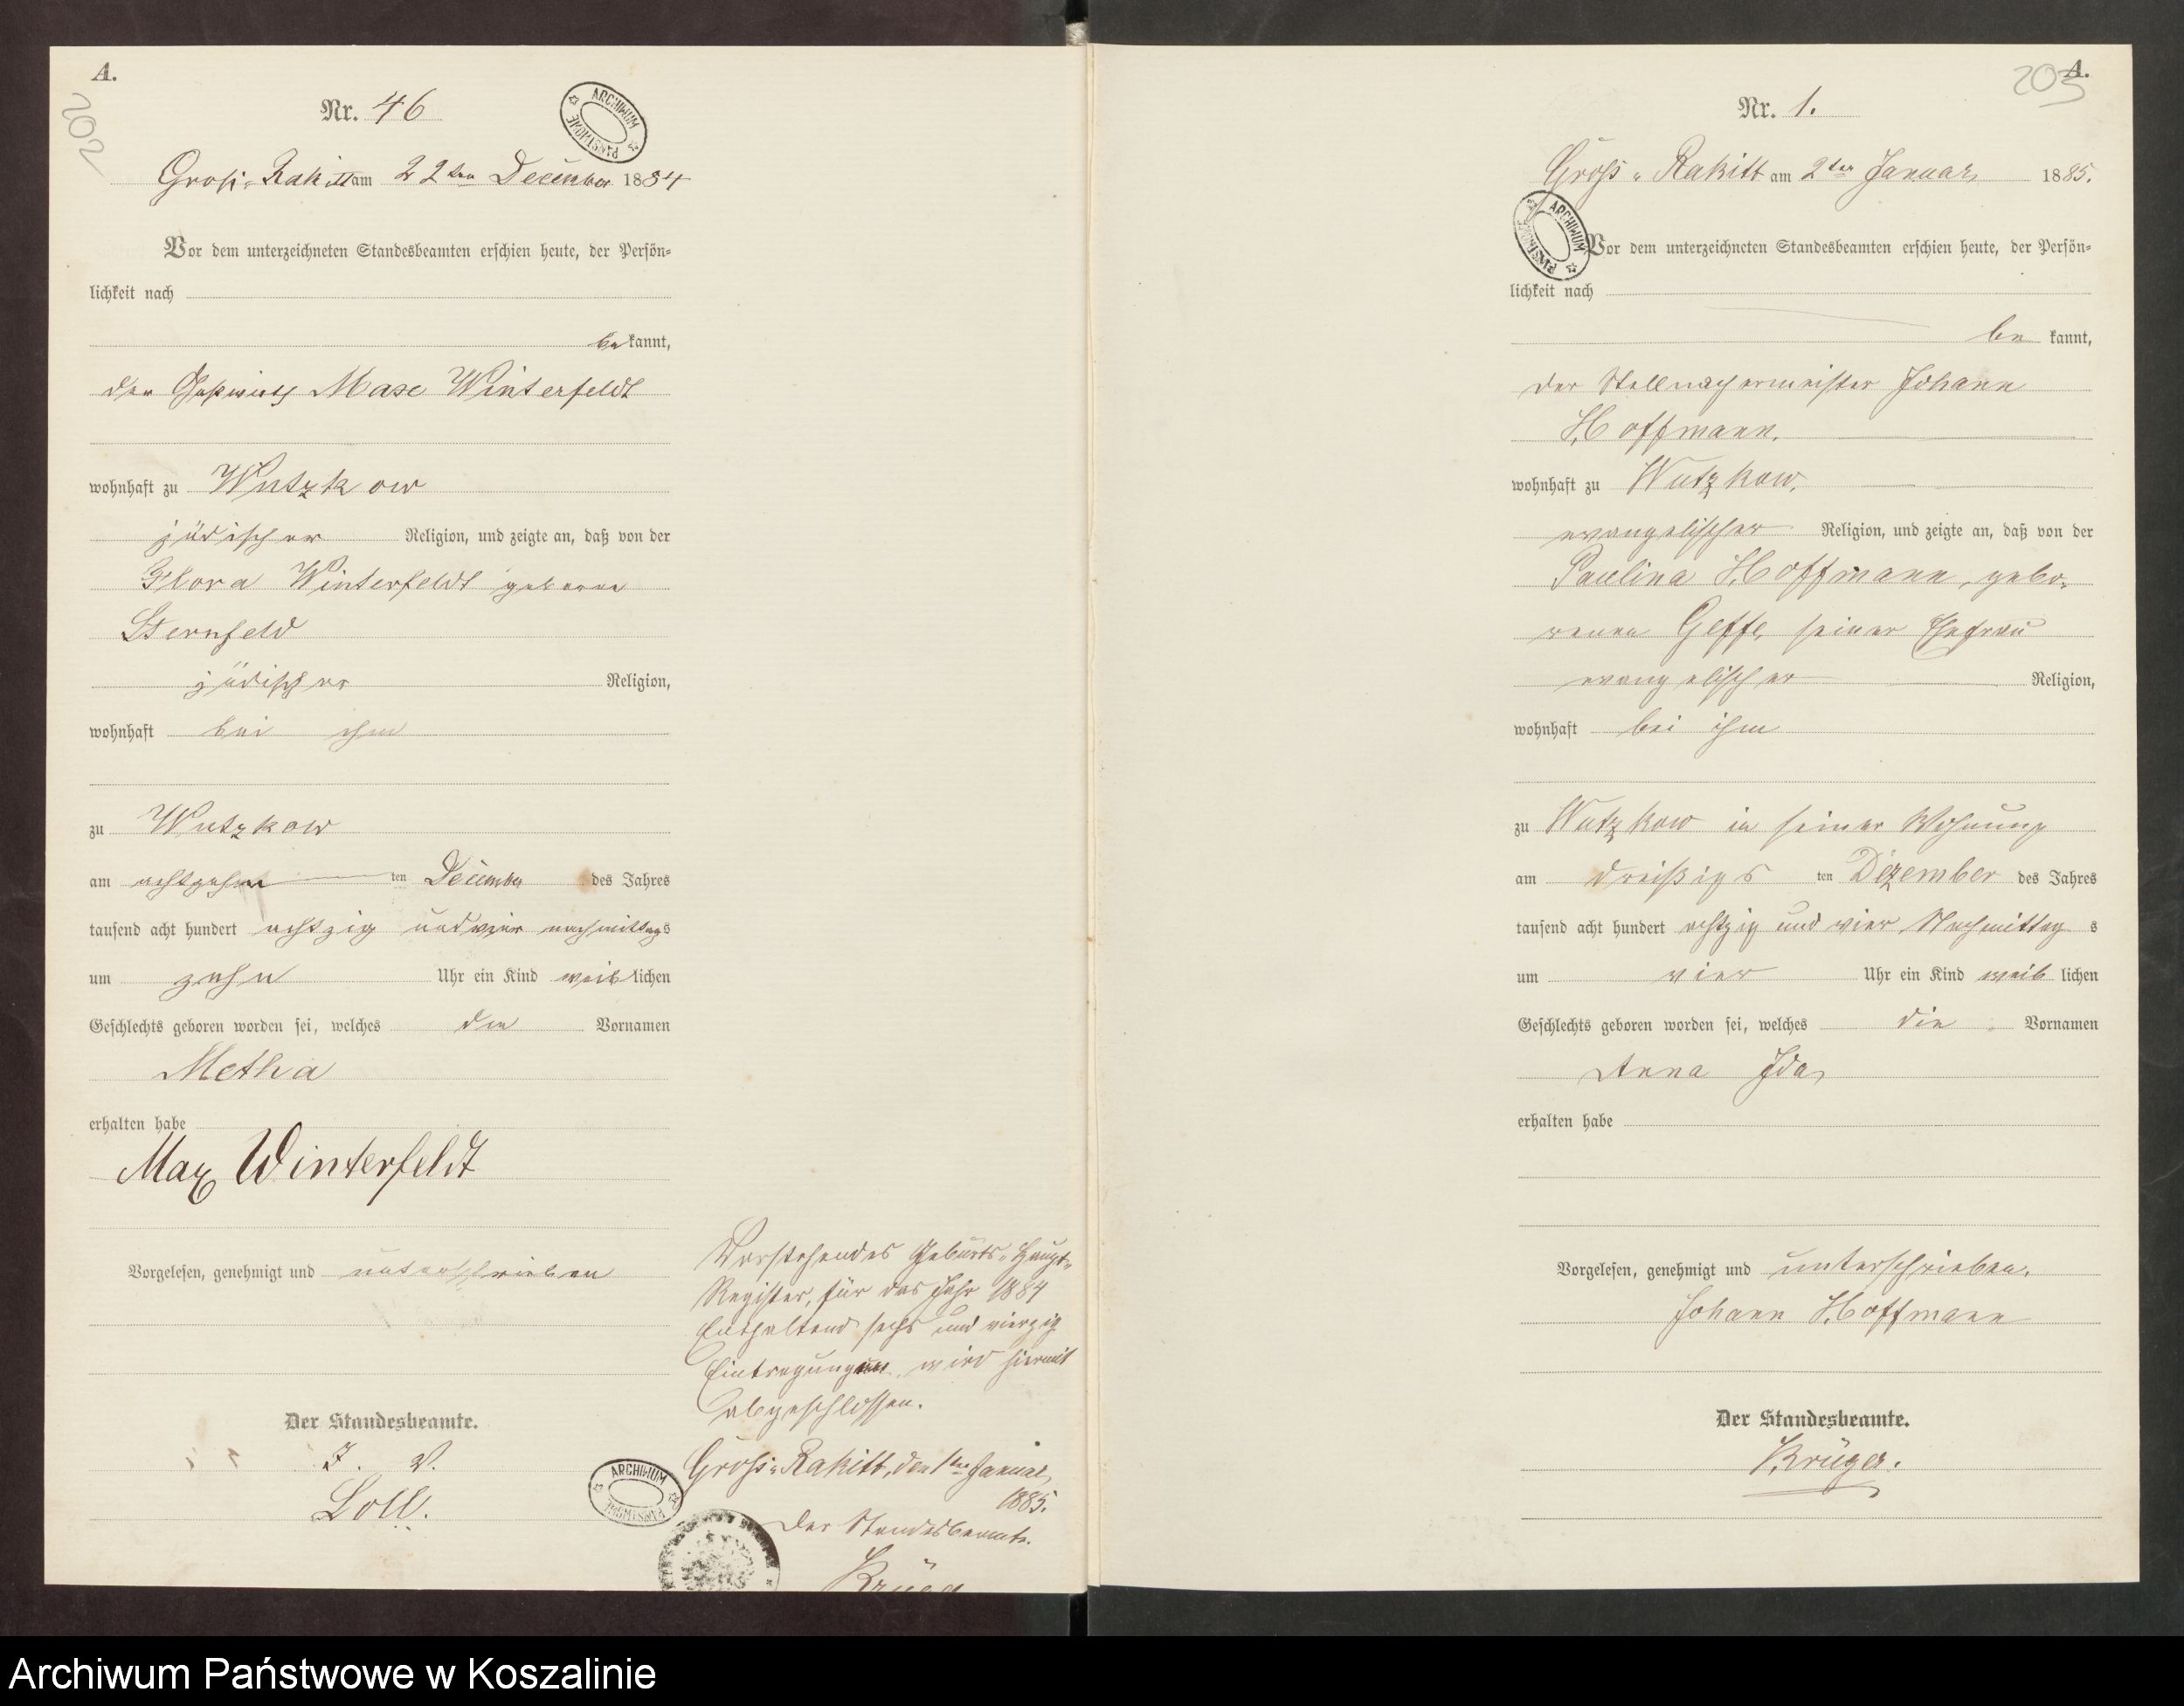 A.
202
Nr. 46
ARCHIWUM PAŃSTWOWE
Groß-Rakitt am 22ten December 1884
Vor dem unterzeichneten Standesbeamten erschien heute, der Persön-
lichkeit nach
bekannt,
der Gastwirth Max Winterfeldt
wohnhaft zu Wutzkow
jüdischer Religion, und zeigte an, daß von der
Flora Winterfeldt geborne
Sternfeld
jüdischer Religion,
wohnhaft bei ihm
zu Wutzkow
am achtzehn ten December des Jahres
tausend acht hundert achtzig und vier nachmittags
um zehn Uhr ein Kind weiblichen
Geschlechts geboren worden sei, welches den Vornamen
Metha
erhalten habe
Max Winterfeldt
Vorgelesen, genehmigt und unterschrieben
Der Standesbeamte.
I. V.
Loll.
Vorstehendes Geburts-Haupt-
Register, für das Jahr 1884
Enthaltend sechs und vierzig
Eintragungen, wird hiermit
abgeschlossen.
Groß-Rakitt, den 1ten Januar,
1885.
Der Standesbeamte.
ARCHIWUM PAŃSTWOWE
A.
203
Nr. 1.
Groß-Rakitt am 2ten Januar, 1885.
ARCHIWUM PAŃSTWOWE
Vor dem unterzeichneten Standesbeamten erschien heute, der Persön-
lichkeit nach
be kannt,
der Stellmachermeister Johann
Hoffmann.
wohnhaft zu Wutzkow.
evangelischer Religion, und zeigte an, daß von der
Paulina Hoffmann, gebo-
renen Geffe, seiner Ehefrau
evangelischer Religion,
wohnhaft bei ihm
zu Wutzkow in seiner Wohnung
am dreißigs ten Dezember des Jahres
tausend acht hundert achtzig und vier, Nachmittag s
um vier Uhr ein Kind weib lichen
Geschlechts geboren worden sei, welches die Vornamen
Anna Ida,
erhalten habe
Vorgelesen, genehmigt und unterschrieben.
Johann Hoffmann
Der Standesbeamte.
Krüger.
Archiwum Państwowe w Koszalinie